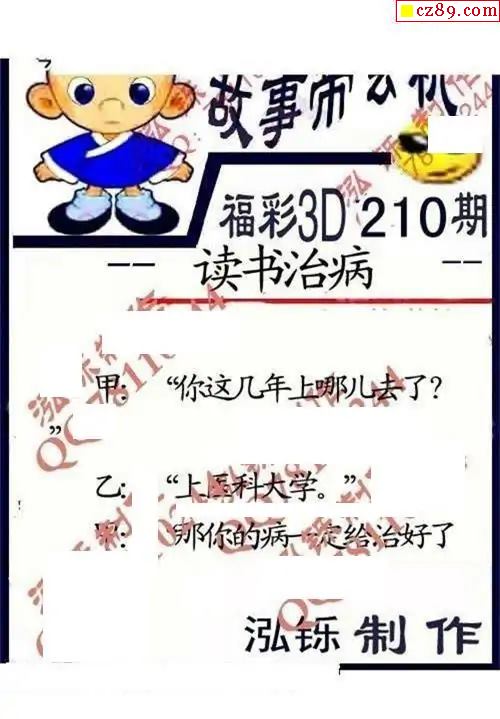 cz89.com
故事师玄机
福彩3D 210期
-- 读书治病 --
甲: “你这几年上哪儿去了?
”
乙: “上医科大学。”
甲: “那你的病一定给治好了
泓铄 制作